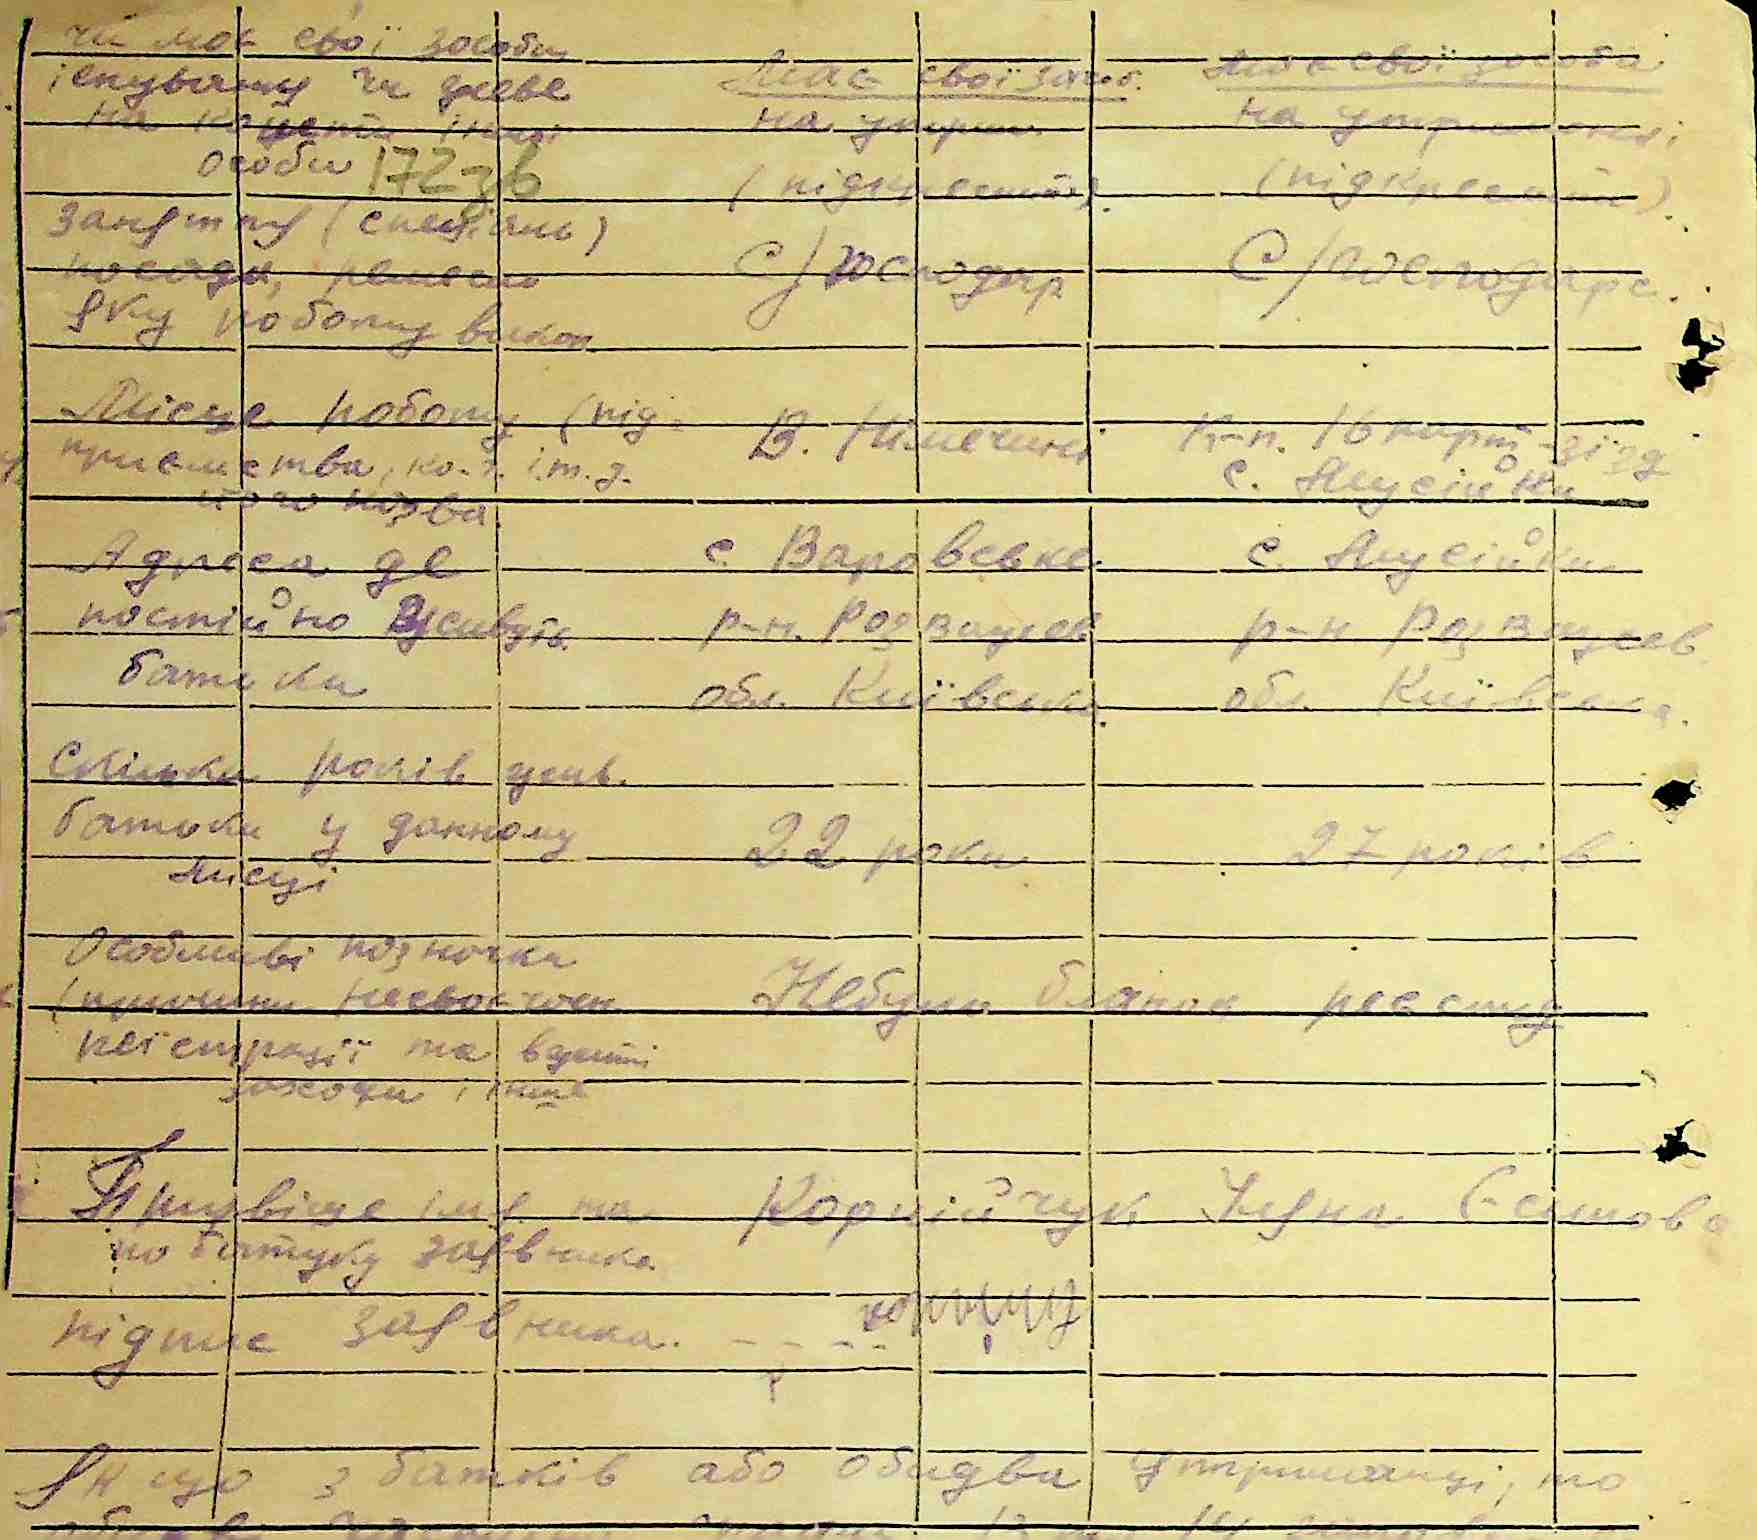 чи має свої засоби
існування чи живе
на кошти іншої
особи 172зв
Має свої засоб.
на утрим.
(підкреслити).
Має свої засоби
на утриманні
(підкреслити).
Заняття (спеціальн)
посада, ремесло
яку роботу викон
С/господар
С/господарс.
Місце роботи (під-
приємства, ко-г. і.т.д.
його назва
В. Німеччині
К-п. 16 парт-зїзд
с. Мусійки
Адреса де
постійно живуть
батьки
с. Варовське
р-н. Розважев
обл. Київська.
с. Мусійки.
р-н Розважев
обл. Київська.
Скільки років жив.
батьки у данному
місці
22 роки
27 років
Особливі позначки
(причини несвоєчасн
реїстрації та вжиті
заходи і інше
Небуло бланок реєстру
Прізвіще імя та
по батьку заявника
Корнійчук Уляна Євтимова
підпис заявника.
Якщо з батьків або обидва утриманці, то